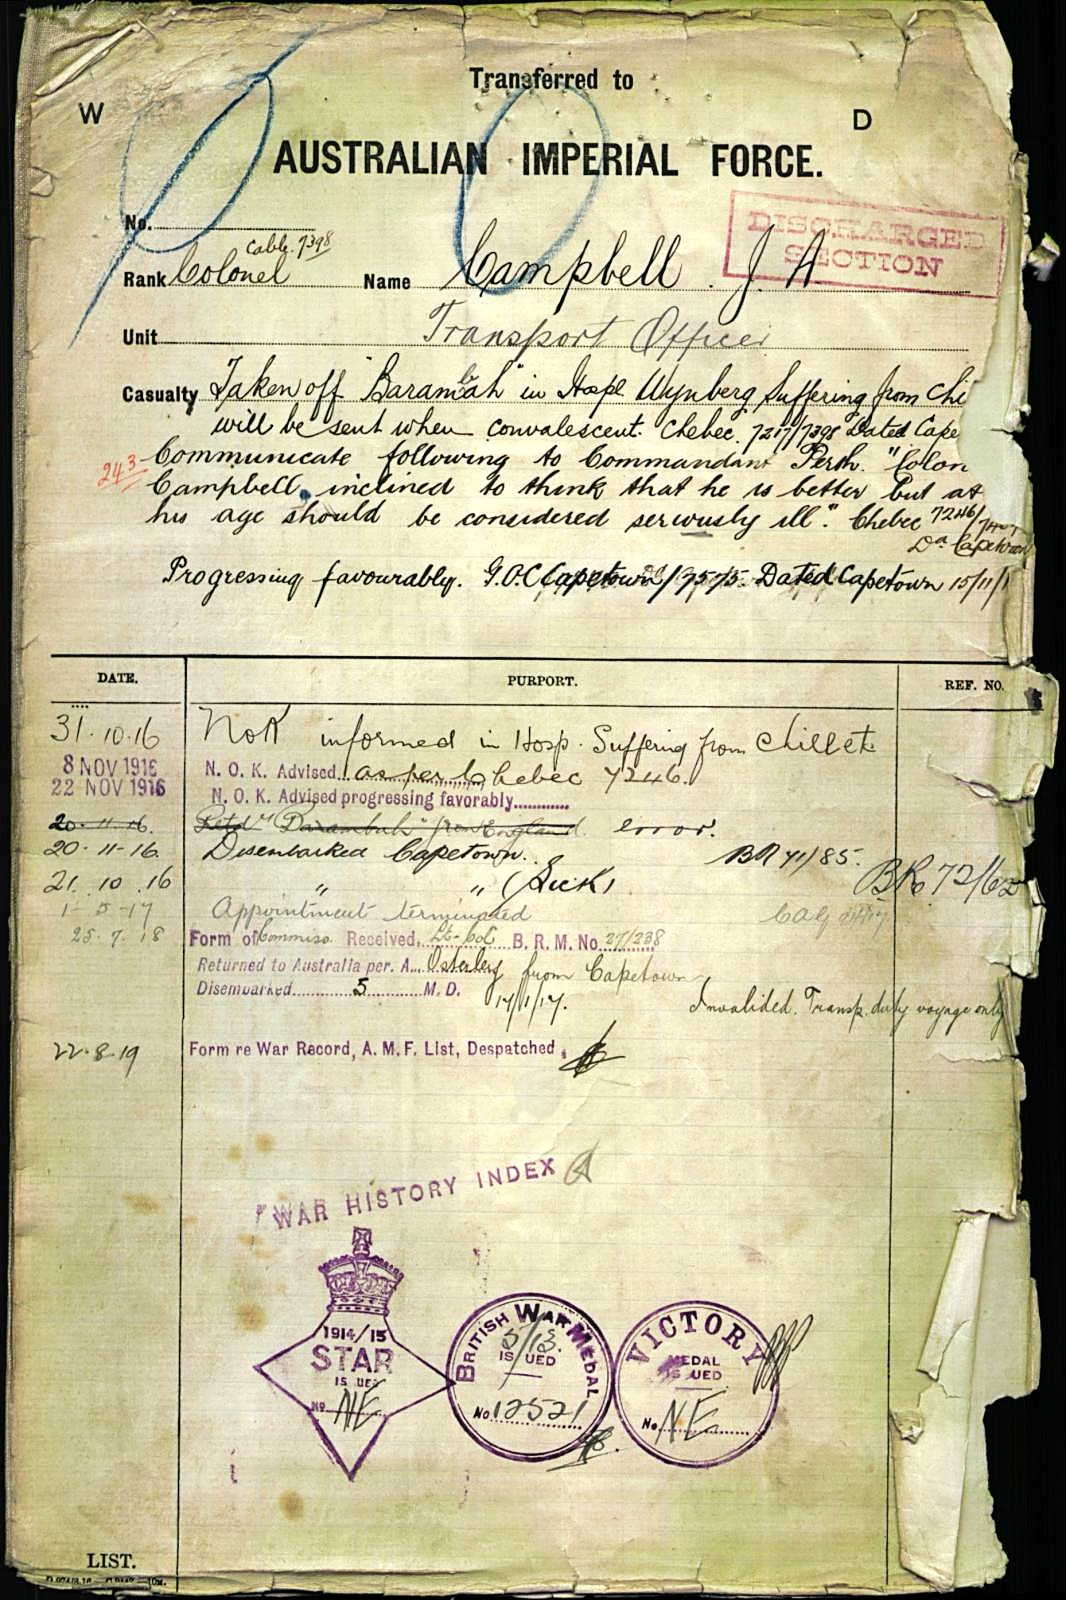 Transferred to
W D
AUSTRALIAN IMPERIAL FORCE.
DISCHARGED
SECTION
No.
Cable 7398
Rank Colonel Name Campbell. J. A
Unit Transport Officer
Casualty Taken off "Barambah" in Hospl Wynberg Suffering from Chi
will be sent when convalescent. Chebec. 7217/7398 Dated Cape
243
Communicate following to Commandant Perth. "Colon
Campbell inclined to think that he is better but at
his age should be considered seriously ill." Chebec 7246/
Dd Capetown
Progressing favourably. G.O.C Capetown /7575. Dated Capetown 15/11/1
DATE. PURPORT. REF. NO.
31.10.16 NoK informed in Hosp. Suffering from chill etc
8 NOV 1916 N. O. K. Advised as per Chebec 7246.
22 NOV 1916 N. O. K. Advised progressing favorably
20-11-16. Retd "Barambah" from England. error.
20-11-16. Disembarked Capetown. BR 71/85.
21.10.16 " " (Sick) BR. 72/62
1-5-17 Appointment terminated CAG
25.7.18 Form of Commiss. Received, Lt-Col B. R. M. No. 27/238
Returned to Australia per. A. Osterley from Capetown
Disembarked 5 M. D. 17/1/17. Invalided. Transp. duty voyage only
22-8-19 Form re War Record, A. M. F. List, Despatched
WAR HISTORY INDEX
1914/15
STAR
ISSUED
No NE
BRITISH WAR MEDAL
5/13.
ISSUED
No 12521
VICTORY
MEDAL
ISSUED
No. NE
LIST.